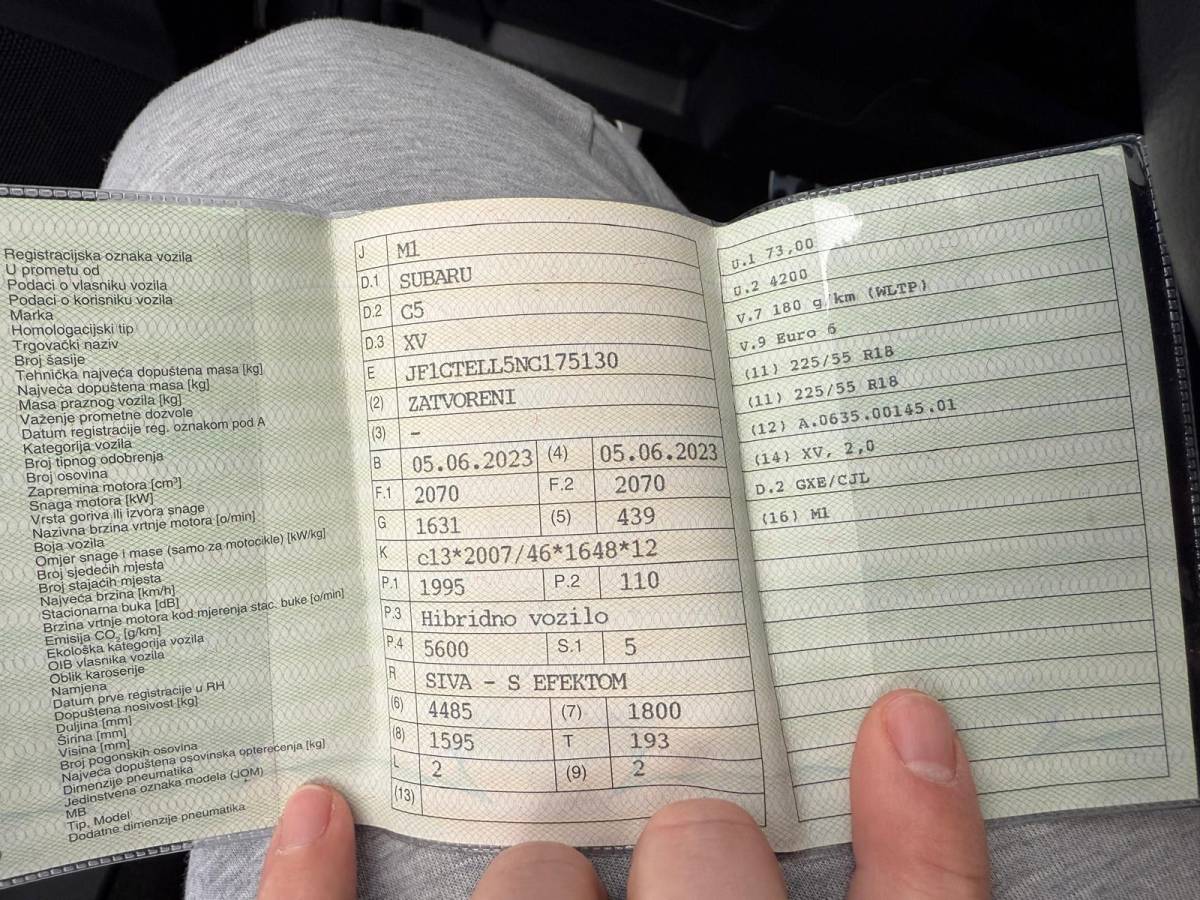 Registracijska oznaka vozila
U prometu od
Podaci o vlasniku vozila
Podaci o korisniku vozila
Marka
Homologacijski tip
Trgovački naziv
Broj šasije
Tehnička najveća dopuštena masa [kg]
Najveća dopuštena masa [kg]
Masa praznog vozila [kg]
Važenje prometne dozvole
Datum registracije reg. oznakom pod A
Kategorija vozila
Broj tipnog odobrenja
Broj osovina
Zapremina motora [cm³]
Snaga motora [kW]
Vrsta goriva ili izvora snage
Nazivna brzina vrtnje motora [o/min]
Boja vozila
Omjer snage i mase (samo za motocikle) [kW/kg]
Broj sjedećih mjesta
Broj stajaćih mjesta
Najveća brzina [km/h]
Stacionarna buka [dB]
Brzina vrtnje motora kod mjerenja stac. buke [o/min]
Emisija CO₂ [g/km]
Ekološka kategorija vozila
OIB vlasnika vozila
Oblik karoserije
Namjena
Datum prve registracije u RH
Dopuštena nosivost [kg]
Duljina [mm]
Širina [mm]
Visina [mm]
Broj pogonskih osovina
Najveća dopuštena osovinska opterećenja [kg]
Dimenzije pneumatika
Jedinstvena oznaka modela (JOM)
MB
Tip, Model
Dodatne dimenzije pneumatika
J M1
D.1 SUBARU
D.2 C5
D.3 XV
E JF1GTELL5NG175130
(2) ZATVORENI
(3) –
B 05.06.2023 (4) 05.06.2023
F.1 2070 F.2 2070
G 1631 (5) 439
K c13*2007/46*1648*12
P.1 1995 P.2 110
P.3 Hibridno vozilo
P.4 5600 S.1 5
R SIVA - S EFEKTOM
(6) 4485 (7) 1800
(8) 1595 T 193
L 2 (9) 2
(13)
U.1 73,00
U.2 4200
V.7 180 g/km (WLTP)
V.9 Euro 6
(11) 225/55 R18
(11) 225/55 R18
(12) A.0635.00145.01
(14) XV, 2,0
D.2 GXE/CJL
(16) M1